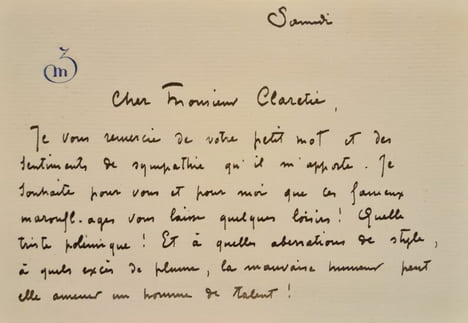 Samedi
Cher Monsieur Claretie,
Je vous remercie de votre petit mot et des
sentiments de sympathie qu'il m'apporte. Je
souhaite pour vous et pour moi que ces fameux
maroufl-ages vous laisse quelques loisirs ! Quelle
triste polémique ! Et à quelles aberrations de style,
à quels excès de plume, la mauvaise humeur peut
elle amener un homme de talent !